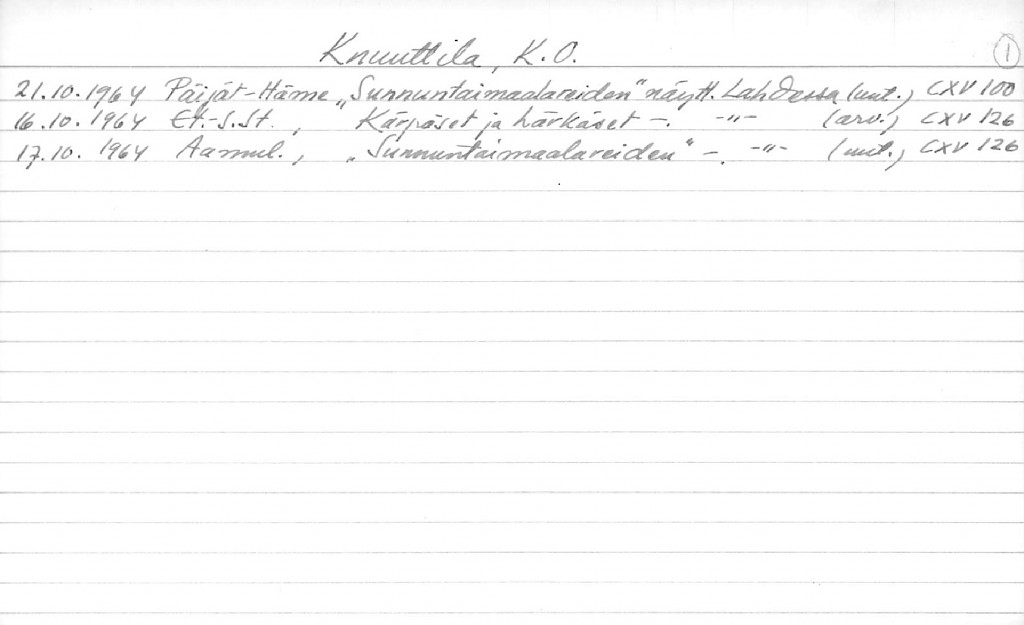 Knuuttila, K.O. 1
21.10.1964 Päijät-Häme „Sunnuntaimaalareiden" näytt. Lahdessa (uut.) CXV 100
16.10.1964 Et.-S.St., Kärpäset ja härkäset -. -"- (arv.) CXV 126
17.10.1964 Aamul., „Sunnuntaimaalareiden" -. -"- (uut.) CXV 126